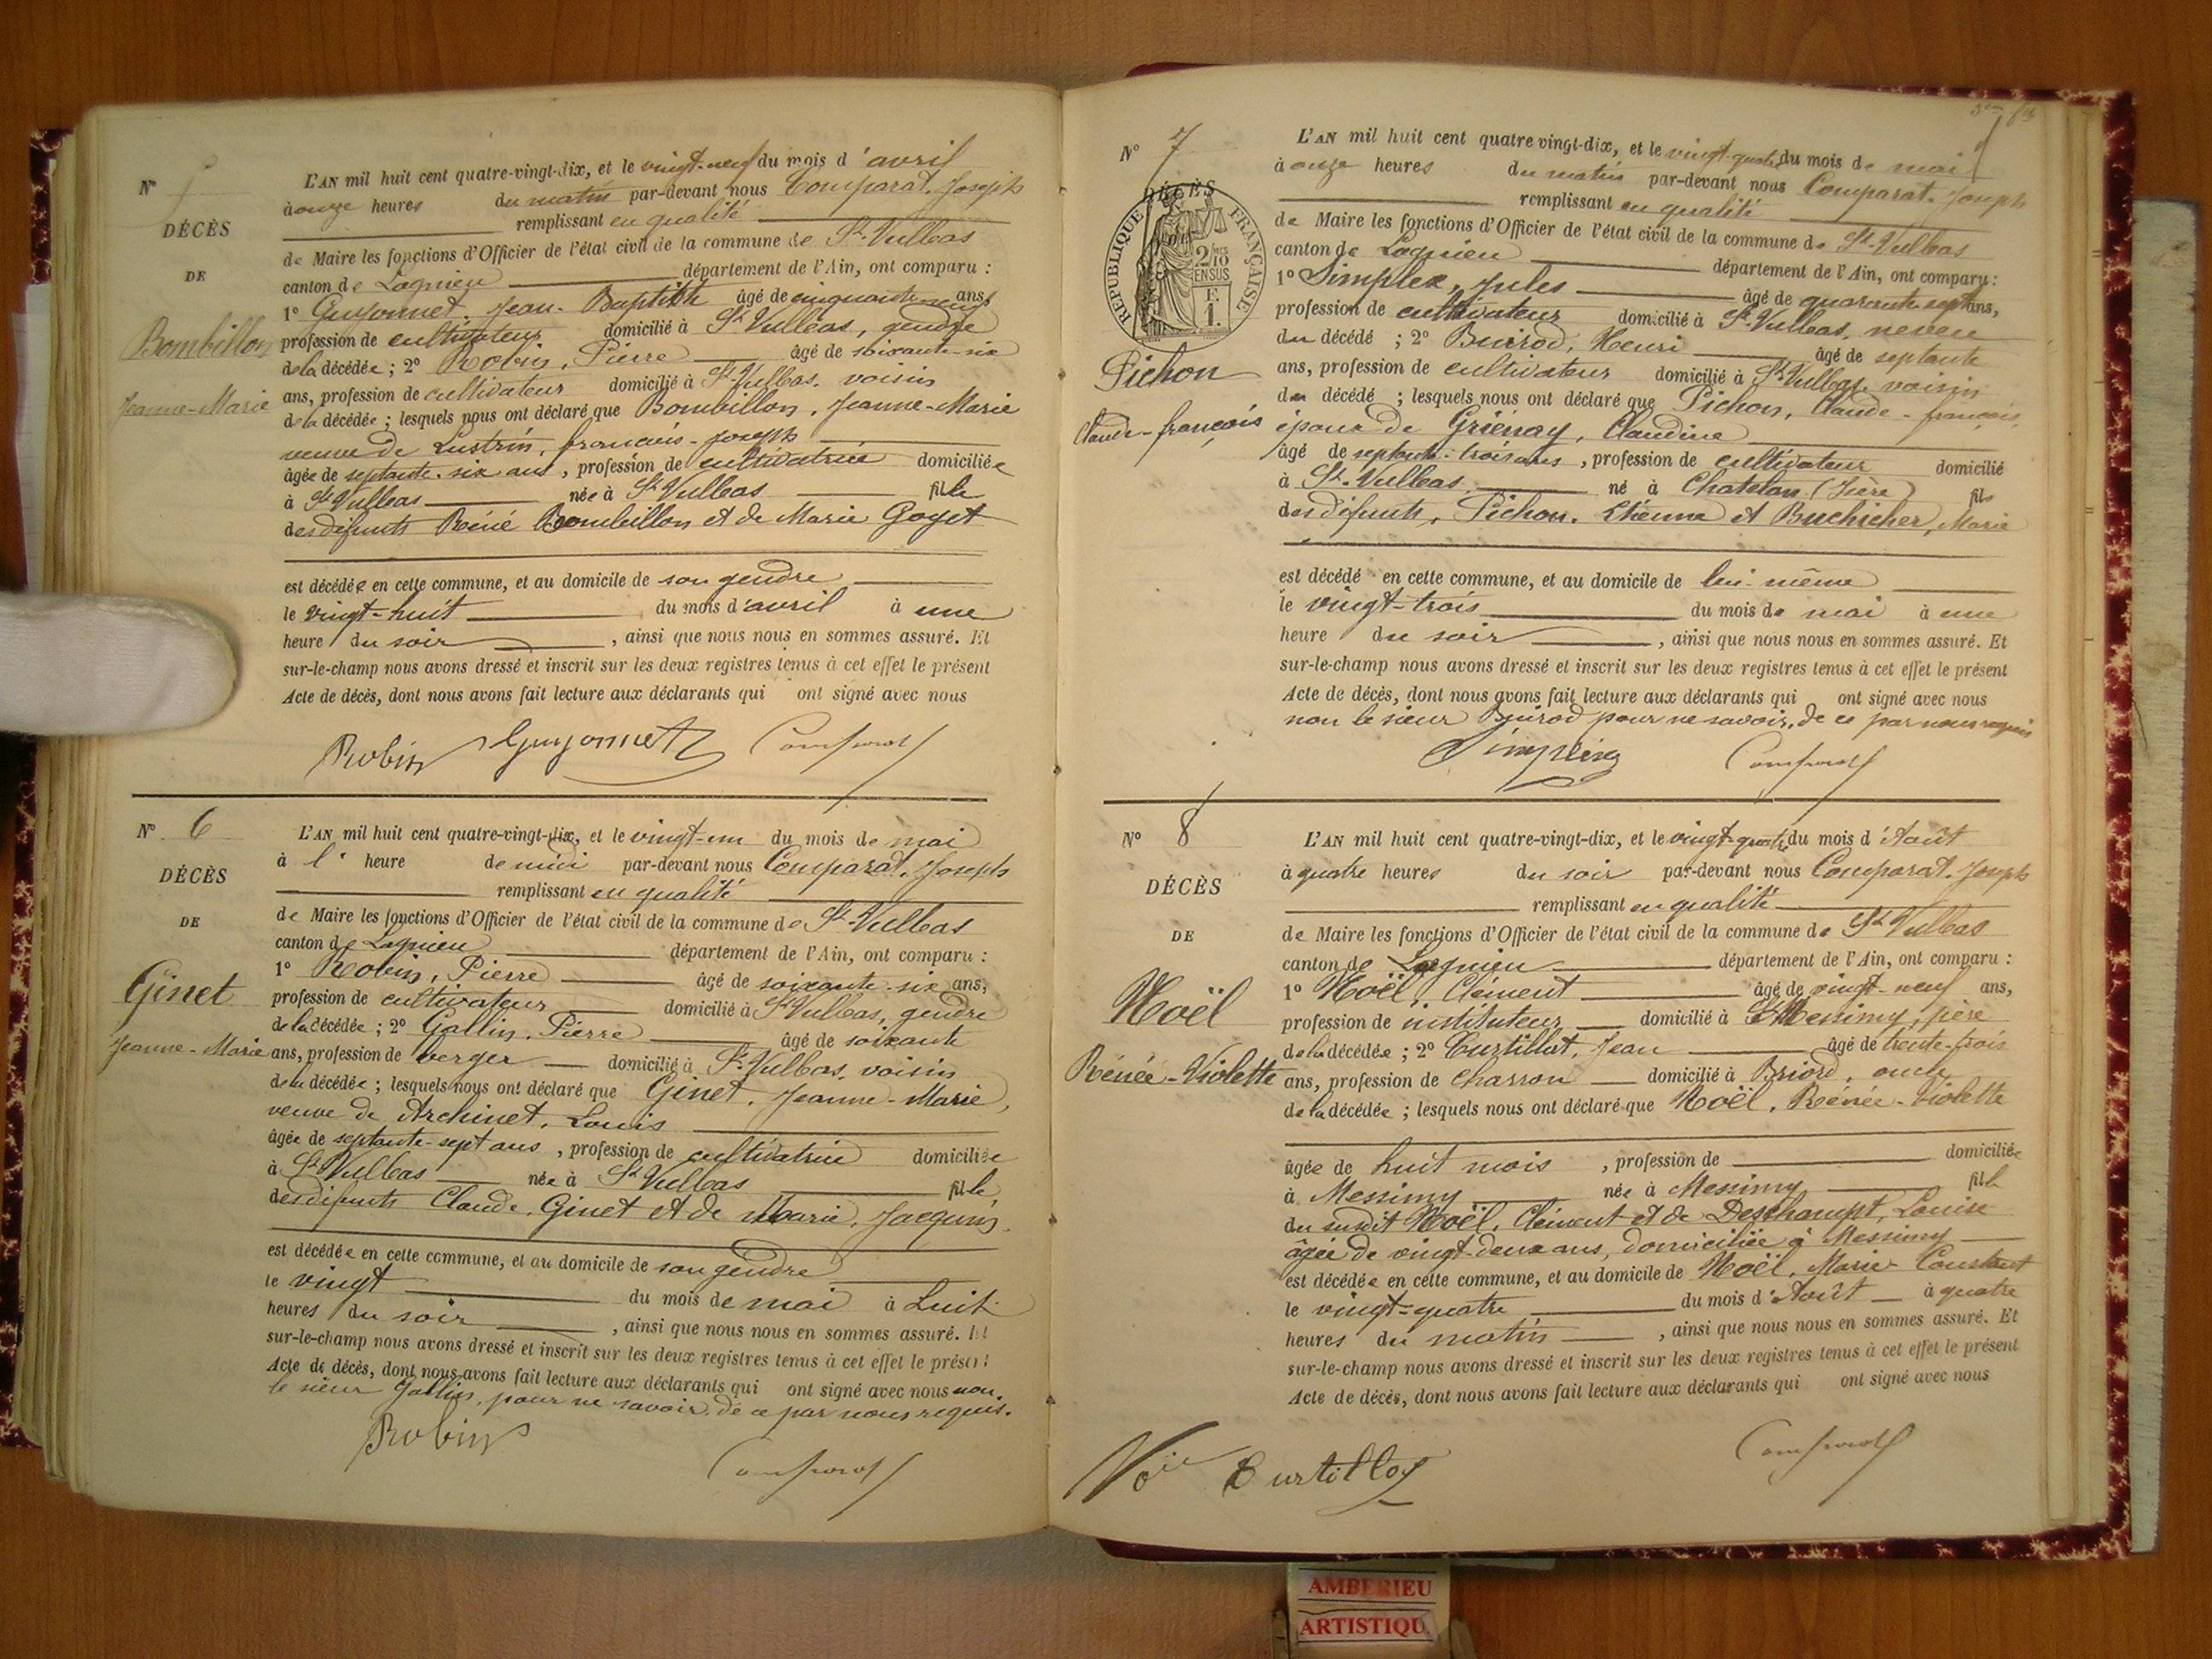 N° 5
DÉCÈS
DE
Bombillon
Jeanne-Marie
L'AN mil huit cent quatre-vingt-dix, et le vingt-neuf du mois d'avril
à onze heures du matin par-devant nous Comparat, Joseph
remplissant en qualité
de Maire les fonctions d'Officier de l'état civil de la commune de St Vulbas
canton de Lagnieu département de l'Ain, ont comparu :
1° Guyonnet, Jean-Baptiste âgé de cinquante-neuf ans,
profession de cultivateur domicilié à St Vulbas, gendre
de la décédée ; 2° Robin, Pierre âgé de soixante-six
ans, profession de cultivateur domicilié à St Vulbas, voisin
de la décédée ; lesquels nous ont déclaré que Bombillon, Jeanne-Marie
veuve de Lustrin, francois-Joseph
âgée de septante-six ans, profession de cultivatrice domiciliée
à St Vulbas née à St Vulbas fille
des défunts Réné Bombillon et de Marie Goyet
est décédée en cette commune, et au domicile de son gendre
le vingt-huit du mois d'avril à une
heure du soir, ainsi que nous nous en sommes assuré. Et
sur-le-champ nous avons dressé et inscrit sur les deux registres tenus à cet effet le présent
Acte de décès, dont nous avons fait lecture aux déclarants qui ont signé avec nous
Robin Guyonnet Comparat
N° 6
DÉCÈS
DE
Ginet
Jeanne-Marie
L'AN mil huit cent quatre-vingt-dix, et le vingt-un du mois de mai
à l' heure de midi par-devant nous Comparat, Joseph
remplissant en qualité
de Maire les fonctions d'Officier de l'état civil de la commune de St Vulbas
canton de Lagnieu département de l'Ain, ont comparu :
1° Robin, Pierre âgé de soixante-six ans,
profession de cultivateur domicilié à St Vulbas, gendre
de la décédée ; 2° Gallin, Pierre âgé de soixante
ans, profession de berger domicilié à St Vulbas, voisin
de la décédée ; lesquels nous ont déclaré que Ginet, Jeanne-Marie,
veuve de Archinet, Louis
âgée de septante-sept ans, profession de cultivatrice domiciliée
à St Vulbas née à St Vulbas fille
des défunts Claude, Ginet et de Marie, Jacquin
est décédée en cette commune, et au domicile de son gendre
le vingt du mois de mai à huit
heures du soir, ainsi que nous nous en sommes assuré. Et
sur-le-champ nous avons dressé et inscrit sur les deux registres tenus à cet effet le présent
Acte de décès, dont nous avons fait lecture aux déclarants qui ont signé avec nous non
le sieur Gallin, pour ne savoir, de ce par nous requis.
Robin
Comparat
N° 7
DÉCÈS
RÉPUBLIQUE FRANÇAISE
2/10
EN SUS
F.
1.
Pichon
Claude-françois
L'AN mil huit cent quatre-vingt-dix, et le vingt-quatre du mois de mai
à onze heures du matin par-devant nous Comparat, Joseph
remplissant en qualité
de Maire les fonctions d'Officier de l'état civil de la commune de St Vulbas
canton de Lagnieu département de l'Ain, ont comparu :
1° Simplex, Jules âgé de quarante-sept ans,
profession de cultivateur domicilié à St Vulbas, neveu
du décédé ; 2° Buirod, Henri âgé de septante
ans, profession de cultivateur domicilié à St Vulbas, voisin
du décédé ; lesquels nous ont déclaré que Pichon, Claude-françois,
époux de Griénay, Claudine
âgé de septante-trois ans, profession de cultivateur domicilié
à St Vulbas né à Chatelan (Isère) fils
des défunts, Pichon, Etienne et Buchicher, Marie
est décédé en cette commune, et au domicile de lui-même
le vingt-trois du mois de mai à une
heure du soir, ainsi que nous nous en sommes assuré. Et
sur-le-champ nous avons dressé et inscrit sur les deux registres tenus à cet effet le présent
Acte de décès, dont nous avons fait lecture aux déclarants qui ont signé avec nous
non le sieur Buirod pour ne savoir, de ce par nous requis
Simplex Comparat
N° 8
DÉCÈS
DE
Noël
Rénée-Violette
L'AN mil huit cent quatre-vingt-dix, et le vingt-quatre du mois d'Août
à quatre heures du soir par-devant nous Comparat, Joseph
remplissant en qualité
de Maire les fonctions d'Officier de l'état civil de la commune de St Vulbas
canton de Lagnieu département de l'Ain, ont comparu :
1° Noël, Clément âgé de vingt-neuf ans,
profession de instituteur domicilié à Messimy, père
de la décédée ; 2° Curtillat, Jean âgé de trente-trois
ans, profession de charron domicilié à Briord, oncle
de la décédée ; lesquels nous ont déclaré que Noël, Rénée-Violette
âgée de huit mois, profession de domiciliée
à Messimy née à Messimy fille
du susdit Noël, Clément et de Deschampt, Louise
âgée de vingt-deux ans, domiciliée à Messimy
est décédée en cette commune, et au domicile de Noël, Marie Constant
le vingt-quatre du mois d'Août à quatre
heures du matin, ainsi que nous nous en sommes assuré. Et
sur-le-champ nous avons dressé et inscrit sur les deux registres tenus à cet effet le présent
Acte de décès, dont nous avons fait lecture aux déclarants qui ont signé avec nous
Curtillat
Comparat
AMBERIEU
ARTISTIQU